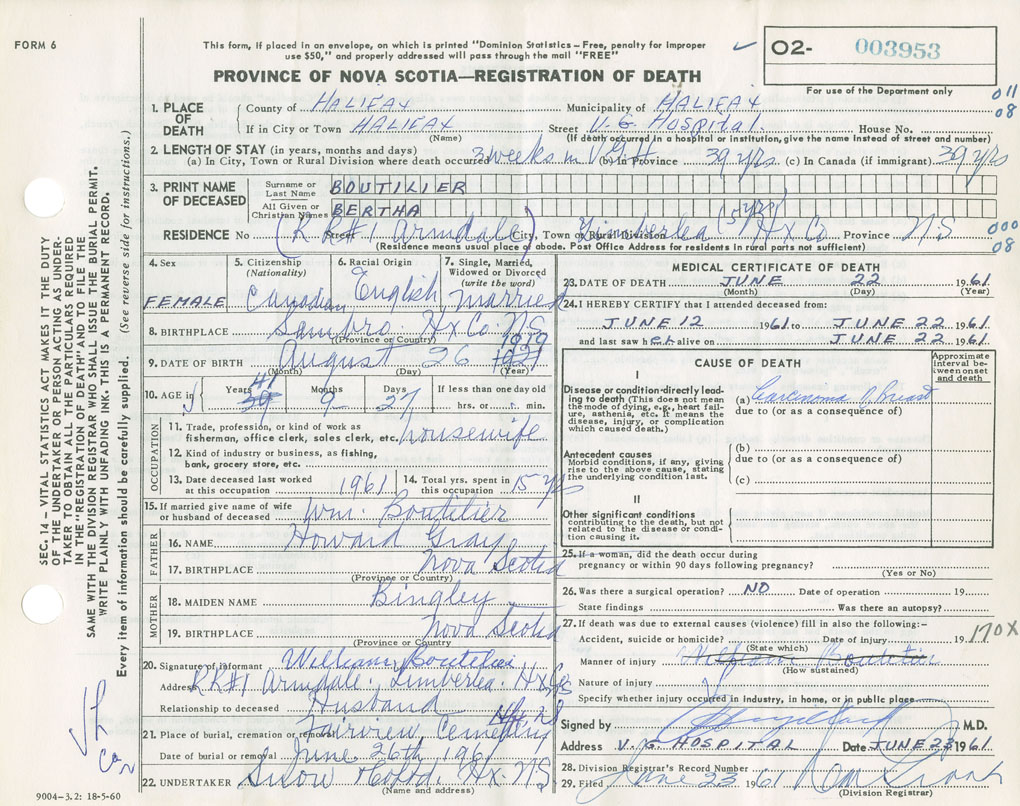 FORM 6
This form, if placed in an envelope, on which is printed "Dominion Statistics – Free, penalty for improper
use $50," and properly addressed will pass through the mail "FREE"
PROVINCE OF NOVA SCOTIA—REGISTRATION OF DEATH
02- 003953
For use of the Department only
011
08
1. PLACE OF DEATH
County of HALIFAX Municipality of HALIFAX
If in City or Town HALIFAX Street V.G. Hospital. House No.
(Name) (If death occurred in a hospital or institution, give the name instead of street and number)
2. LENGTH OF STAY (in years, months and days)
(a) In City, Town or Rural Division where death occurred 3 weeks in V.G.H (b) In Province 39 yrs (c) In Canada (if immigrant) 39 yrs
3. PRINT NAME OF DECEASED
Surname or Last Name BOUTILIER
All Given or Christian Names BERTHA
RESIDENCE No (RR#1 Armdale) Street City, Town or Rural Division Timberlea Hx Co Province N.S. 000
08
(Residence means usual place of abode. Post Office Address for residents in rural parts not sufficient)
4. Sex FEMALE
5. Citizenship (Nationality) Canadian
6. Racial Origin English
7. Single, Married, Widowed or Divorced (write the word) Married
8. BIRTHPLACE Sambro. Hx Co. N.S
(Province or Country)
9. DATE OF BIRTH August 26 1919 1921
(Month) (Day) (Year)
10. AGE in Years 41 39 Months 9 Days 27 If less than one day old hrs. or min.
OCCUPATION
11. Trade, profession, or kind of work as
fisherman, office clerk, sales clerk, etc. housewife
12. Kind of industry or business, as fishing,
bank, grocery store, etc.
13. Date deceased last worked at this occupation 1961 14. Total yrs. spent in this occupation 15 yrs
15. If married give name of wife or husband of deceased Wm. Boutilier
FATHER
16. NAME Howard Gray
17. BIRTHPLACE Nova Scotia
(Province or Country)
MOTHER
18. MAIDEN NAME Bingley
19. BIRTHPLACE Nova Scotia
(Province or Country)
20. Signature of informant William Boutilier
Address RR#1 Armdale. Timberlea. Hx Co
Relationship to deceased Husband
21. Place of burial, cremation or removal Fairview Cemetery
Date of burial or removal June 26th 1961
22. UNDERTAKER Snow Co Ltd. Hx. N.S
(Name and address)
9004-3.2: 18-5-60
MEDICAL CERTIFICATE OF DEATH
23. DATE OF DEATH JUNE 22 1961
(Month) (Day) (Year)
24. I HEREBY CERTIFY that I attended deceased from:
JUNE 12 1961 to JUNE 22 1961
and last saw her alive on JUNE 22 1961
CAUSE OF DEATH
Approximate interval between onset and death
I
Disease or condition directly leading to death (This does not mean the mode of dying, e.g., heart failure, asthenia, etc. It means the disease, injury, or complication which caused death.)
(a) Carcinoma of Breast
due to (or as a consequence of)
Antecedent causes
Morbid conditions, if any, giving rise to the above cause, stating the underlying condition last.
(b)
due to (or as a consequence of)
(c)
II
Other significant conditions
contributing to the death, but not related to the disease or condition causing it.
25. If a woman, did the death occur during
pregnancy or within 90 days following pregnancy?
(Yes or No)
26. Was there a surgical operation? NO Date of operation 19
State findings Was there an autopsy?
27. If death was due to external causes (violence) fill in also the following:-
Accident, suicide or homicide? Date of injury 19
(State which)
170X
Manner of injury William Boutilier
(How sustained)
Nature of injury
Specify whether injury occurred in industry, in home, or in public place
Signed by M.D.
Address V. G. HOSPITAL Date JUNE 23 1961
28. Division Registrar's Record Number
29. Filed June 23 1961
(Division Registrar)
SEC. 14 – VITAL STATISTICS ACT MAKES IT THE DUTY
OF THE UNDERTAKER OR PERSON ACTING AS UNDER-
TAKER TO OBTAIN ALL THE PARTICULARS REQUIRED
IN THE "REGISTRATION OF DEATH" AND TO FILE THE
SAME WITH THE DIVISION REGISTRAR WHO SHALL ISSUE THE BURIAL PERMIT.
WRITE PLAINLY WITH UNFADING INK. THIS IS A PERMANENT RECORD.
Every item of information should be carefully supplied. (See reverse side for instructions.)